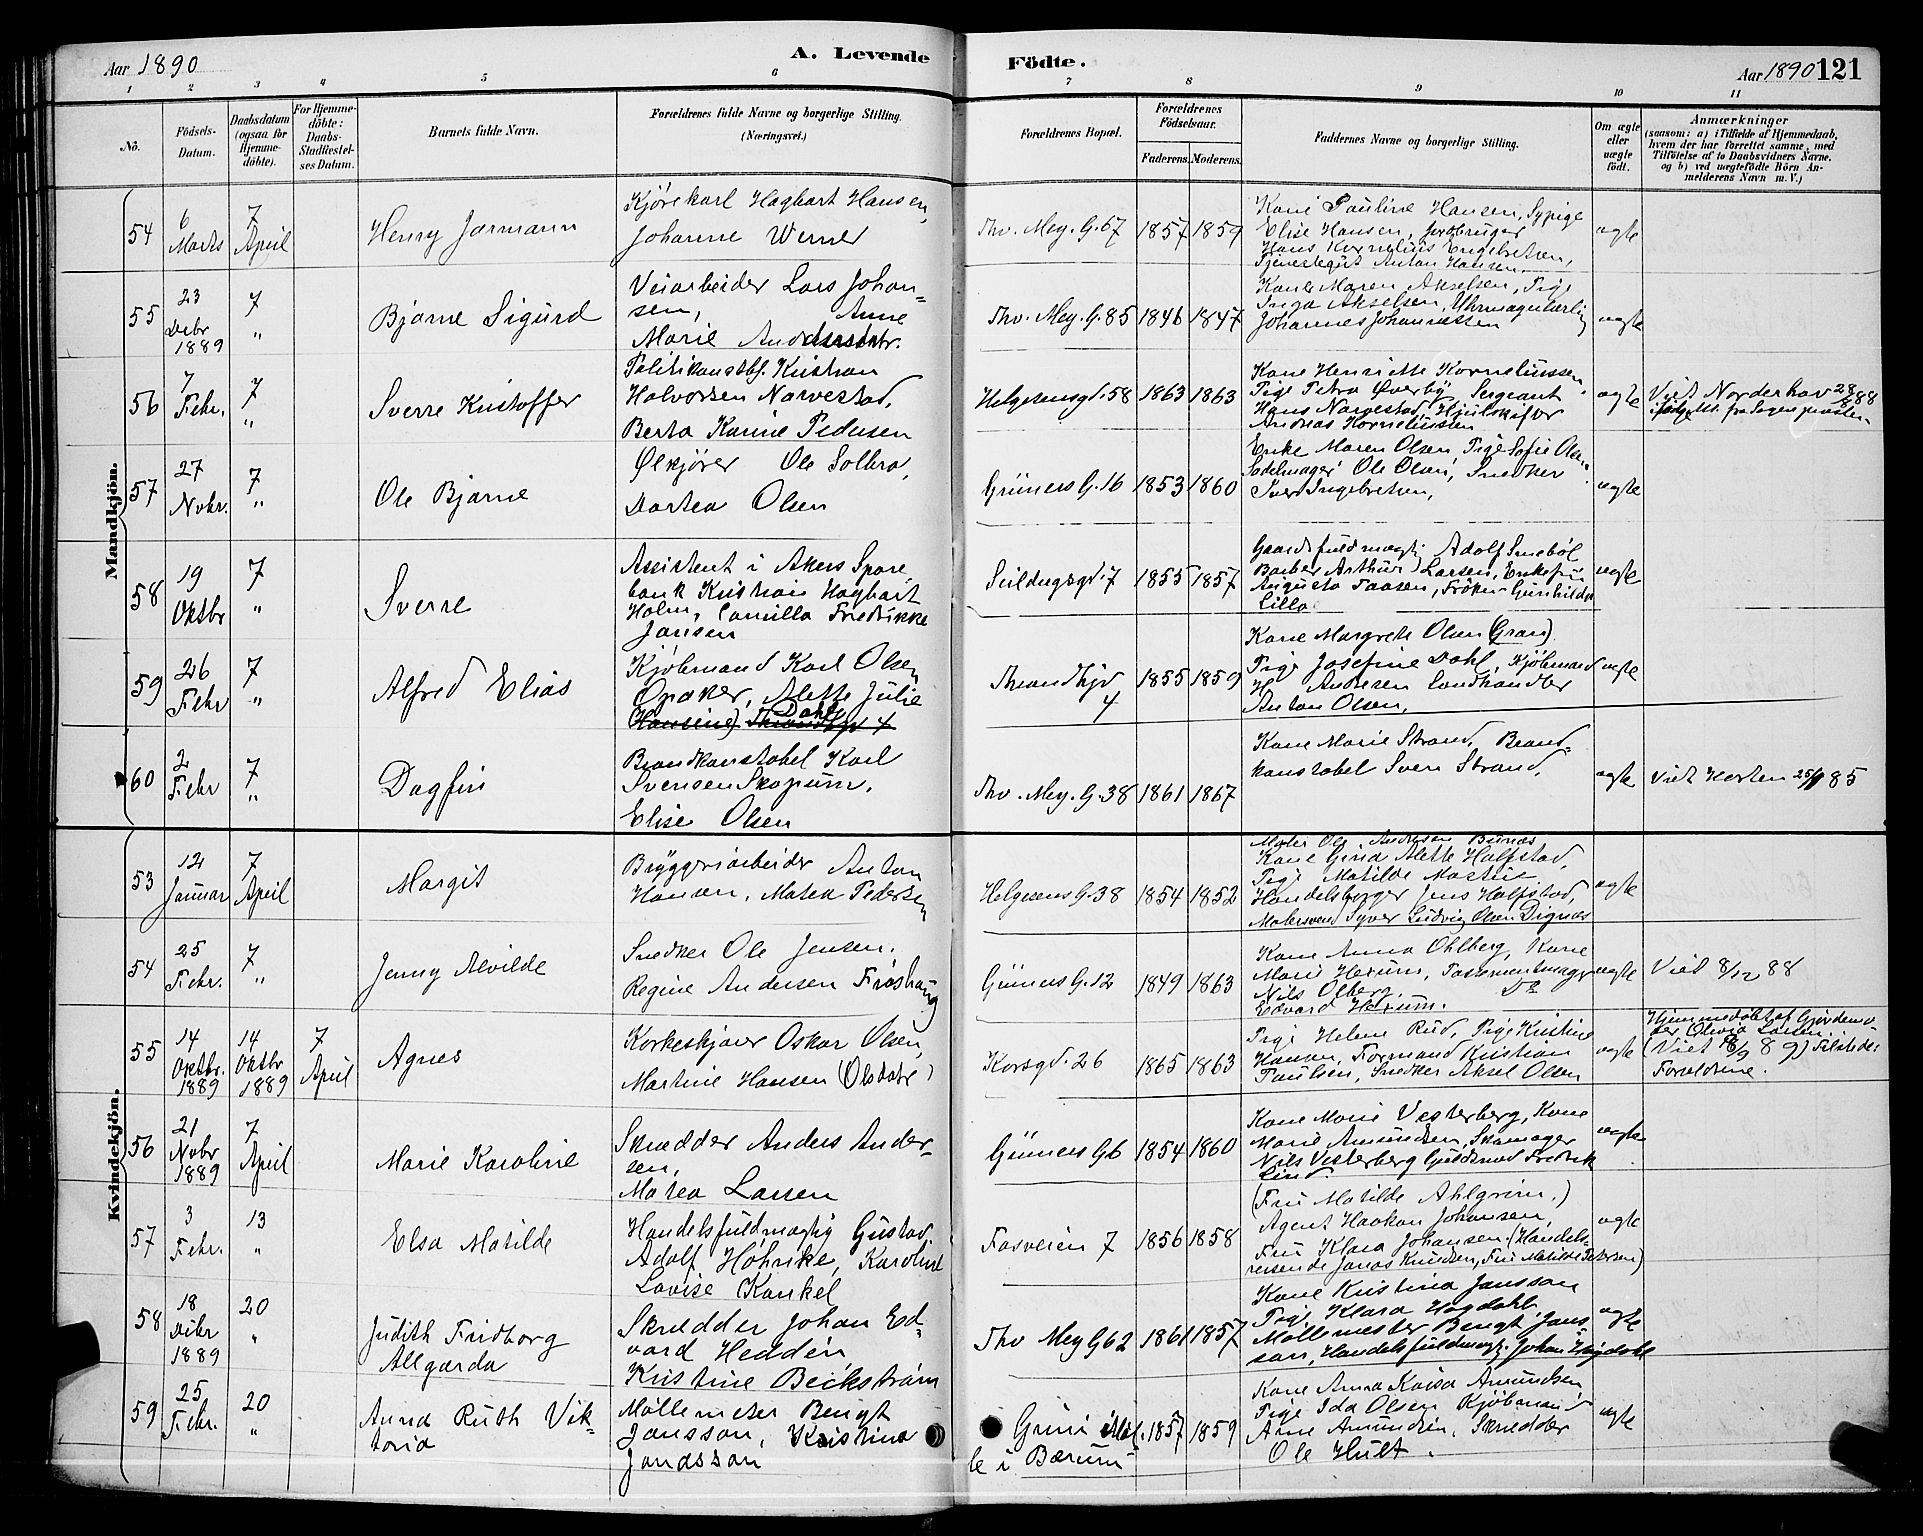 Aar 1890
A. Levende
Födte.
Aar 1890 121
1 2 3 4 5 6 7 8 9 10 11
No.
Födsels-Datum.
Daabsdatum (ogsaa for Hjemme-döbte).
For Hjemme-döbte: Daabs-Stadfæstel-ses Datum.
Barnets fulde Navn.
Forældrenes fulde Navne og borgerlige Stilling.
(Næringsvei.)
Forældrenes Bopæl.
Forældrenes Födselsaar.
Faderens. Moderens.
Faddernes Navne og borgerlige Stilling.
Om ægte eller uægte födt.
Anmærkninger
(saasom: a) i Tilfælde af Hjemmedaab,
hvem der har forrettet samme, med
Tilföielse af to Daabsvidners Navne,
og b) ved uægtefödte Börn An-
melderens Navn m. V.)
Mandkjön.
54
6 Marts
7 April
Henry Jarmann
Kjørekarl Hagbart Hansen,
Johanne Werner
Thv. Mey. G. 67
1857 1859
Kone Pauline Hansen, Sypige
Elise Hansen, Jordbruger
Hans Kornelius Engebretsen,
Tjenestegut Anton Hansen.
ægte
55
23 Debr 1889
7 "
Bjarne Sigurd
Veiarbeider Lars Johan-
sen, Anne
Marie Andersdatr.
Thv. Mey. G. 85
1846 1847
Kone Maren Akselsen, Pige
Inga Akselsen, Uhrmagerlærling
Johannes Johannessen
ægte
56
7 Febr.
7 "
Sverre Kristoffer
Politikonstbl. Kristian
Halvorsen Narvestad,
Berta Karine Pedersen
Helgesensgd. 58
1863 1863
Kone Henriette Korneliussen,
Pige Petra Øverby Sergeant
Hans Narvestad, Hjulskifer
Andreas Korneliussen
ægte
Viet Norderhov 28/8 88
ifølge Att. fra Sogneprosten
57
27 Novbr.
7 "
Ole Bjarne
Ølkjører Ole Solbra,
Dortea Olsen
Grüners G. 16
1853 1860
Enke Maren Olsen, Pige Sofie Olsen
Sadelmager Ole Olsen, Snedker
Iver Ingebretsen,
ægte
58
19 Oktbr
7 "
Sverre
Assistent i Akers Spare
bank Kristian Hagbart
Holm, Camilla Fredrikke
Jansen
Seildugsgd. 7
1855 1857
Gaardsfuldmægtig Adolf Snebøl
Barber Arthur Larsen, Enkefru
Augusta Paasen, Frøken Gunhilda
Lilla
ægte
59
26 Febr
7 "
Alfred Elias
Kjøbmand Karl Olsen
Opaker, Alette Julie
Hansine) Dahl Throndhjgd 4
Throndhjgd 4
1855 1859
Kone Margrete Olsen (Gran)
Pige Josefine Dahl, Kjøbmand
H. Andersen Landhandler
Anton Olsen,
ægte
60
2 Febr
7 "
Dagfin
Brandkonstabel Karl
Svensen Skopum,
Elise Olsen
Thv. Mey. G. 38
1861 1867
Kone Marie Strand, Brand-
konstabel Sven Strand,
ægte
Viet Horten 25/1 85
Kvindekjön.
53
12 Januar
7 April
Margit
Bryggeriarbeider Anton
Hansen, Matea Pedersen
Helgesens G. 38
1854 1852
Maler Ole Andresen Bunæs
Kone Gina Alette Halfstad,
Pige Matilde
Handelsborger Jens Halfstad,
Malersvend Syver Ludvig Olsen Dignæs
ægte
54
25 Febr.
7 "
Jenny Alvilde
Snedker Ole Jensen,
Regine Andersen Frøshaug
Grüners G. 12
1849 1863
Kone Anna Ohlberg, Kone
Marie Hexum, Possementmager
Nils Olberg, Do
Edvard Hexum.
ægte
Viet 8/12 88
55
14 Oktbr. 1889
14 Oktbr 1889
7 April
Agnes
Korkeskjærer Oskar Olsen,
Martine Hansen (Olsdatr)
Korsgd. 26
1865 1863
Pige Helene Rud, Pige Kristine
Hansen, Formand Kristian
Paulsen, Snedker Aksel Olsen
ægte
Hjemmedøbt af Gjordemo-
der Olivia Larsen.
(Viet 8/9 89) Tilstede:
Forældrene.
56
21 Novbr 1889
7 April
Marie Karoline
Skrædder Anders Ander-
sen,
Matea Larsen
Grüners G 6
1854 1860
Kone Marie Vesterberg, Kone
Marie Amundsen, Skomager
Nils Vesterberg Guldsmed Fredrik
Lind.
ægte
57
3 Febr.
13 "
Elsa Matilde
Handelsfuldmægtig Gustav
Adolf Höhnke, Karoline
Lovise Kunkel
Fosveien 7
1856 1858
(Fru Matilde Ahlgrim,)
Agent Haakon Johansen,
Fru Klara Johansen (Handels-
reisende Jonas Knudsen, Fru Matilde Petersen)
ægte
58
18 Debr 1889
20 "
Judith Fridborg
Allgarda
Skrædder Johan Ed-
vard Heddén
Kristine Beckstrøm
Thv Mey G 62
1861 1857
Kone Kristina Jansson
Pige Klara Høgdahl
Møllemester Bengt Jans-
son, Handelsfuldmægt. Johan Høgdahl
ægte
59
25 Febr.
20 "
Anna Ruth Vik-
toria
Møllemester Bengt
Jansson, Kristina
Jondsson
Grini Møl-
le i Bærum
1857 1859
Kone Anna Kaisa Amundsen
Pige Ida Olsen Kjøbmand
Arne Amundsen, Skrædder
Ole Hult.
ægte